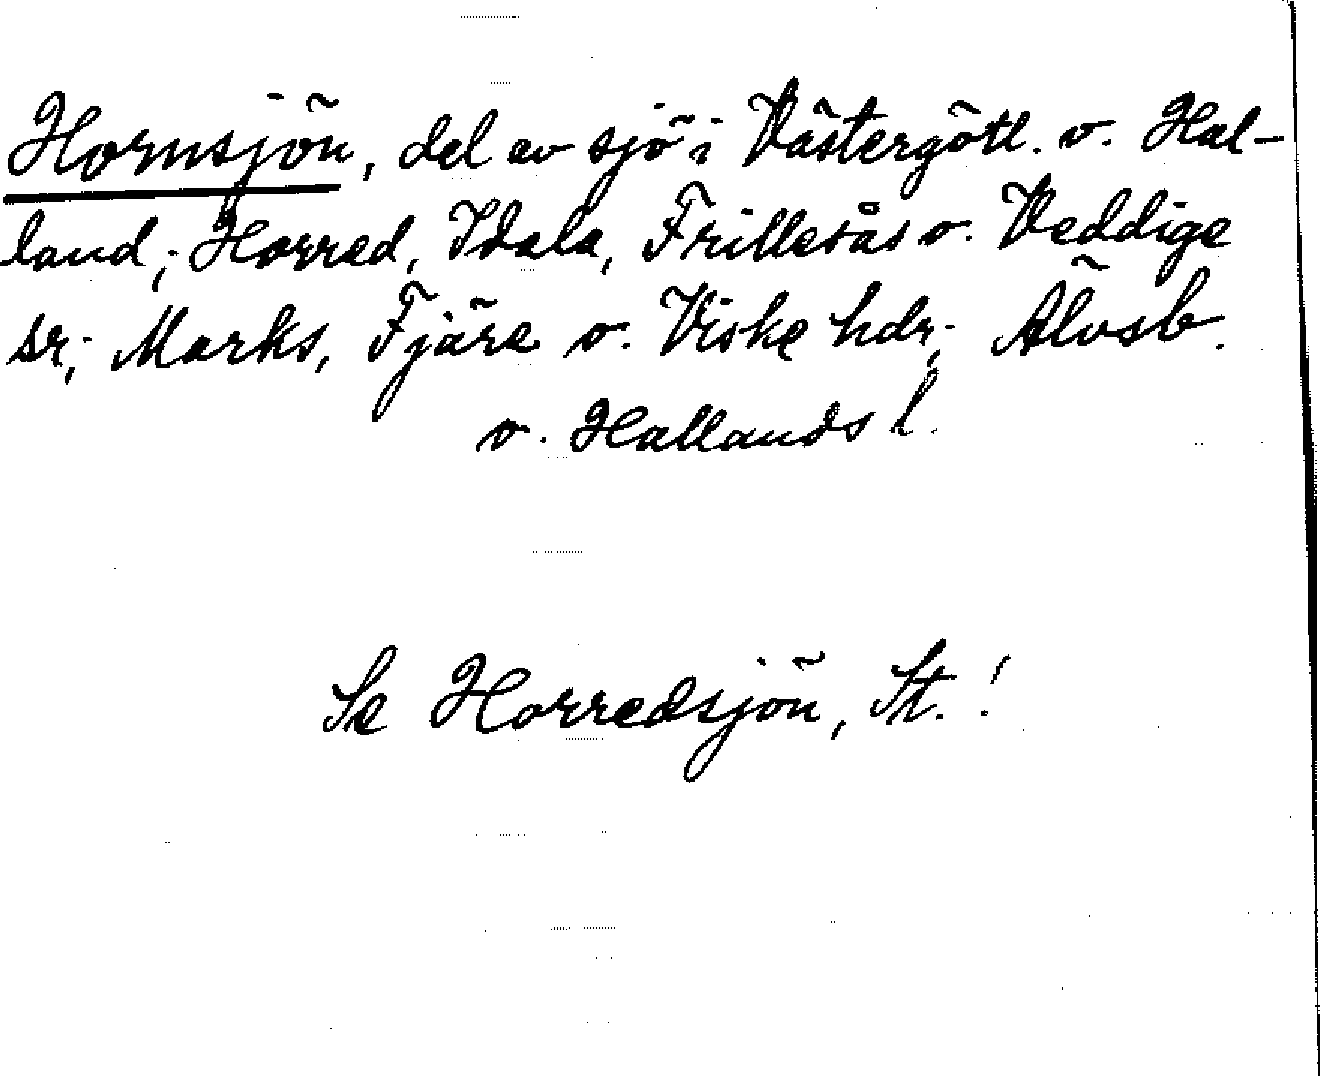 Hornsjön, del av sjö i Västergötl. o. Hal-
land; Horred, Idala, Frillesås o. Veddige
sr; Marks, Fjäre o. Viske hdr; Älvsb.
o. Hallands l.
Se Horredsjön, St.!